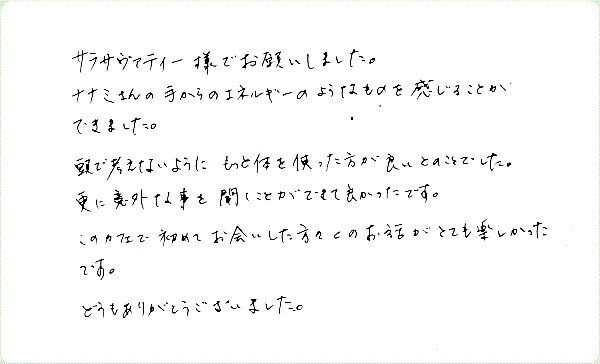 サラサヴァティー様でお願いしました。
ナナミさんの手からのエネルギーのようなものを感じることが
できました。
頭で考えないように もっと体を使った方が良いとのことでした。
更に意外な事を聞くことができて良かったです。
このカフェで初めてお会いした方々とのお話がとても楽しかった
です。
どうもありがとうございました。